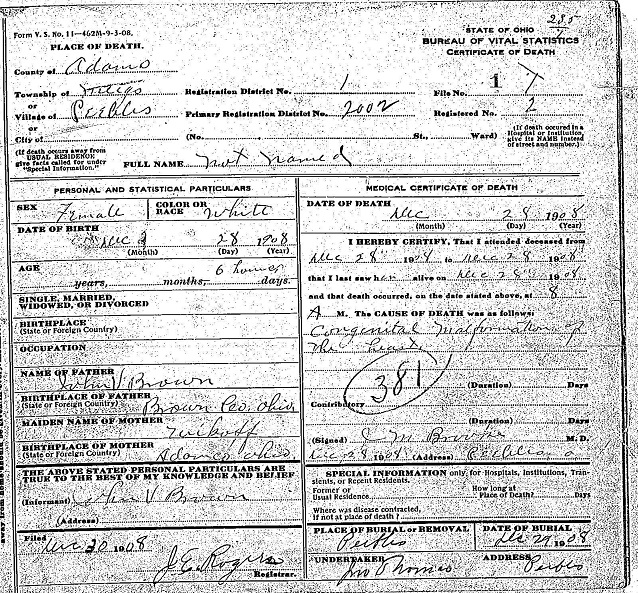 285
Form V. S. No. 11—462M-9-3-08.
PLACE OF DEATH.
STATE OF OHIO
BUREAU OF VITAL STATISTICS
CERTIFICATE OF DEATH
County of Adams
Township of Meigs
Registration District No. 1
File No. 1
or
Village of Peebles
Primary Registration District No. 2002
Registered No. 2
or
City of
(No. St., Ward)
(If death occured in a Hospital or Institution, give its NAME instead of street and number.)
(If death occurs away from USUAL RESIDENCE give facts called for under "Special Information.")
FULL NAME Not Named
PERSONAL AND STATISTICAL PARTICULARS
SEX Female
COLOR OR RACE White
DATE OF BIRTH
Dec 28 1908
(Month) (Day) (Year)
AGE
6 hours
years, months, days.
SINGLE, MARRIED, WIDOWED, OR DIVORCED
BIRTHPLACE
(State or Foreign Country)
OCCUPATION
NAME OF FATHER
John V Brown
BIRTHPLACE OF FATHER
(State or Foreign Country) Brown Co. Ohio
MAIDEN NAME OF MOTHER
BIRTHPLACE OF MOTHER
(State or Foreign Country) Adams Ohio
THE ABOVE STATED PERSONAL PARTICULARS ARE TRUE TO THE BEST OF MY KNOWLEDGE AND BELIEF
(Informant) John V Brown
(Address)
Filed
Dec 30 1908
J. E. Rogers
Registrar.
MEDICAL CERTIFICATE OF DEATH
DATE OF DEATH
Dec 28 1908
(Month) (Day) (Year)
I HEREBY CERTIFY, That I attended deceased from
Dec 28 1908 to Dec 28 1908
that I last saw her alive on Dec 28 1908
and that death occurred, on the date stated above, at 8
A M. The CAUSE OF DEATH was as follows:
Congenital Malformation of
the heart
381
(Duration) Days
Contributory
(Duration) Days
(Signed) M. D.
Dec 28 1908 (Address) Peebles, O
SPECIAL INFORMATION only for Hospitals, Institutions, Transients, or Recent Residents.
Former or Usual Residence.
How long at Place of Death? Days
Where was disease contracted, If not at place of death?
PLACE OF BURIAL OR REMOVAL
Peebles
DATE OF BURIAL
Dec 29 1908
UNDERTAKER
Jno Thomas
ADDRESS
Peebles